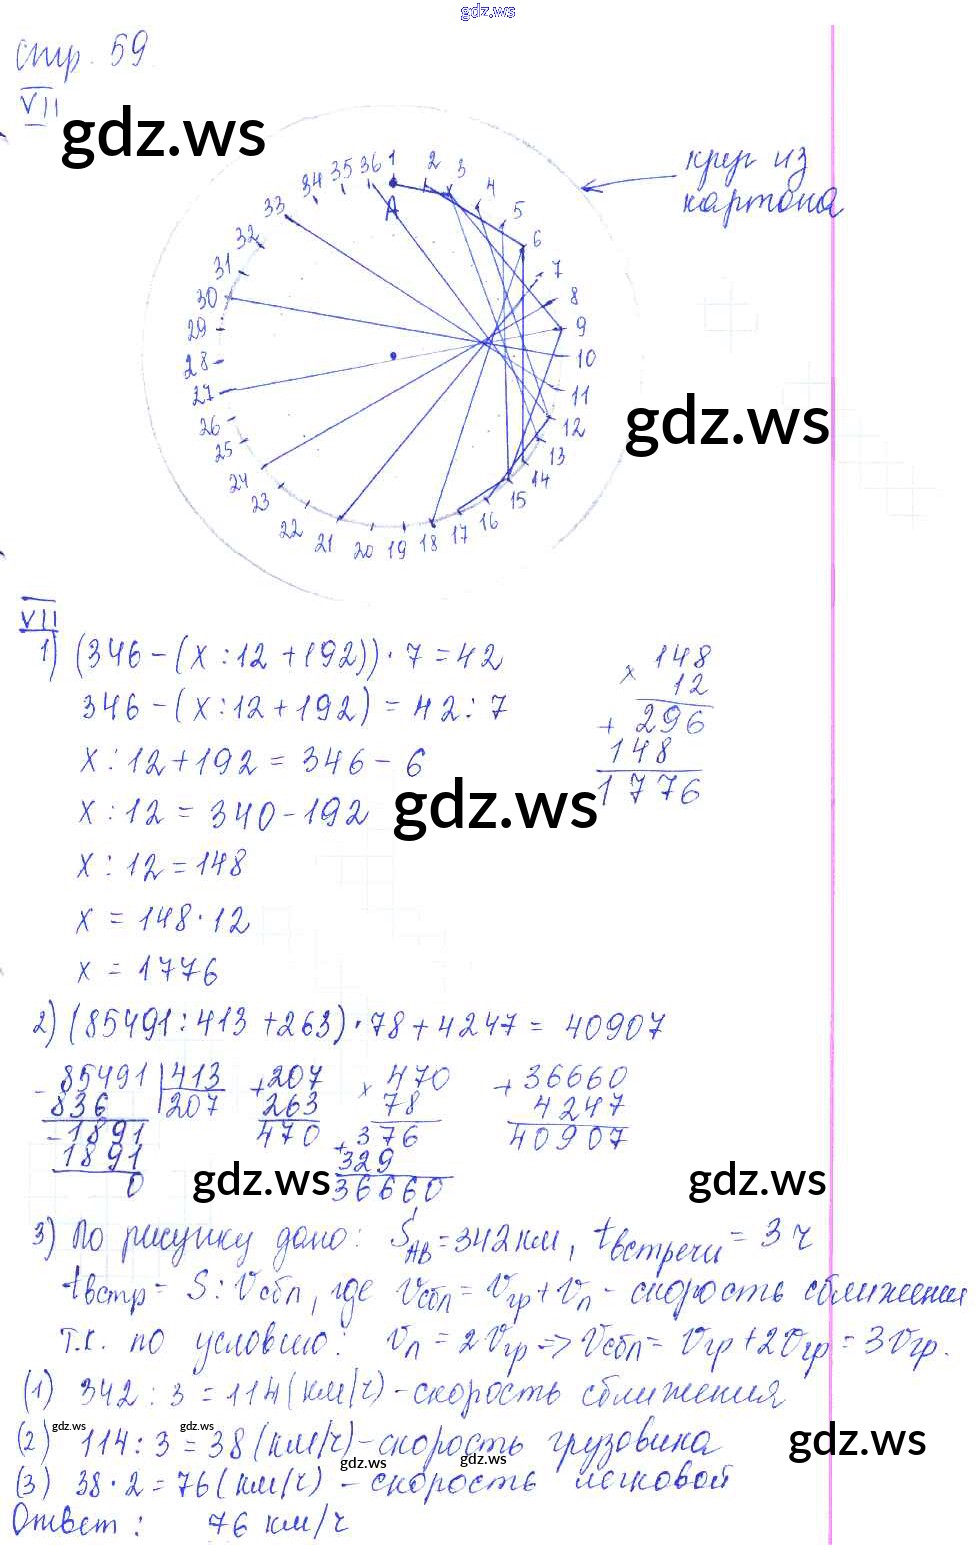 gdz.ws
стр. 59
VII
gdz.ws
круг из
картона
1 2 3 4 5 6 7 8 9 10 11 12 13 14 15 16 17 18 19 20 21 22 23 24 25 26 27 28 29 30 31 32 33 34 35 36
A
gdz.ws
VII
1) (346 - (x : 12 + 192)) · 7 = 42
346 - (x : 12 + 192) = 42 : 7
x : 12 + 192 = 346 - 6
x : 12 = 340 - 192
gdz.ws
x : 12 = 148
x = 148 · 12
x = 1776
× 148
12
+ 296
148
1776
2) (85491 : 413 + 263) · 78 + 4247 = 40907
- 85491 | 413
836 207
- 1891
1891
0
+ 207
263
470
× 470
78
+ 376
329
36660
+ 36660
4247
40907
gdz.ws
gdz.ws
3) По рисунку дано: S AB = 342 км, t встречи = 3 ч
t встр = S : V сбл, где V сбл = V гр + V л - скорость сближения
т.к. по условию: V л = 2 V гр => V сбл = V гр + 2 V гр = 3 V гр.
(1) 342 : 3 = 114 (км/ч) - скорость сближения
gdz.ws gdz.ws
(2) 114 : 3 = 38 (км/ч) - скорость грузовика
gdz.ws
gdz.ws gdz.ws
(3) 38 · 2 = 76 (км/ч) - скорость легковой
Ответ: 76 км/ч